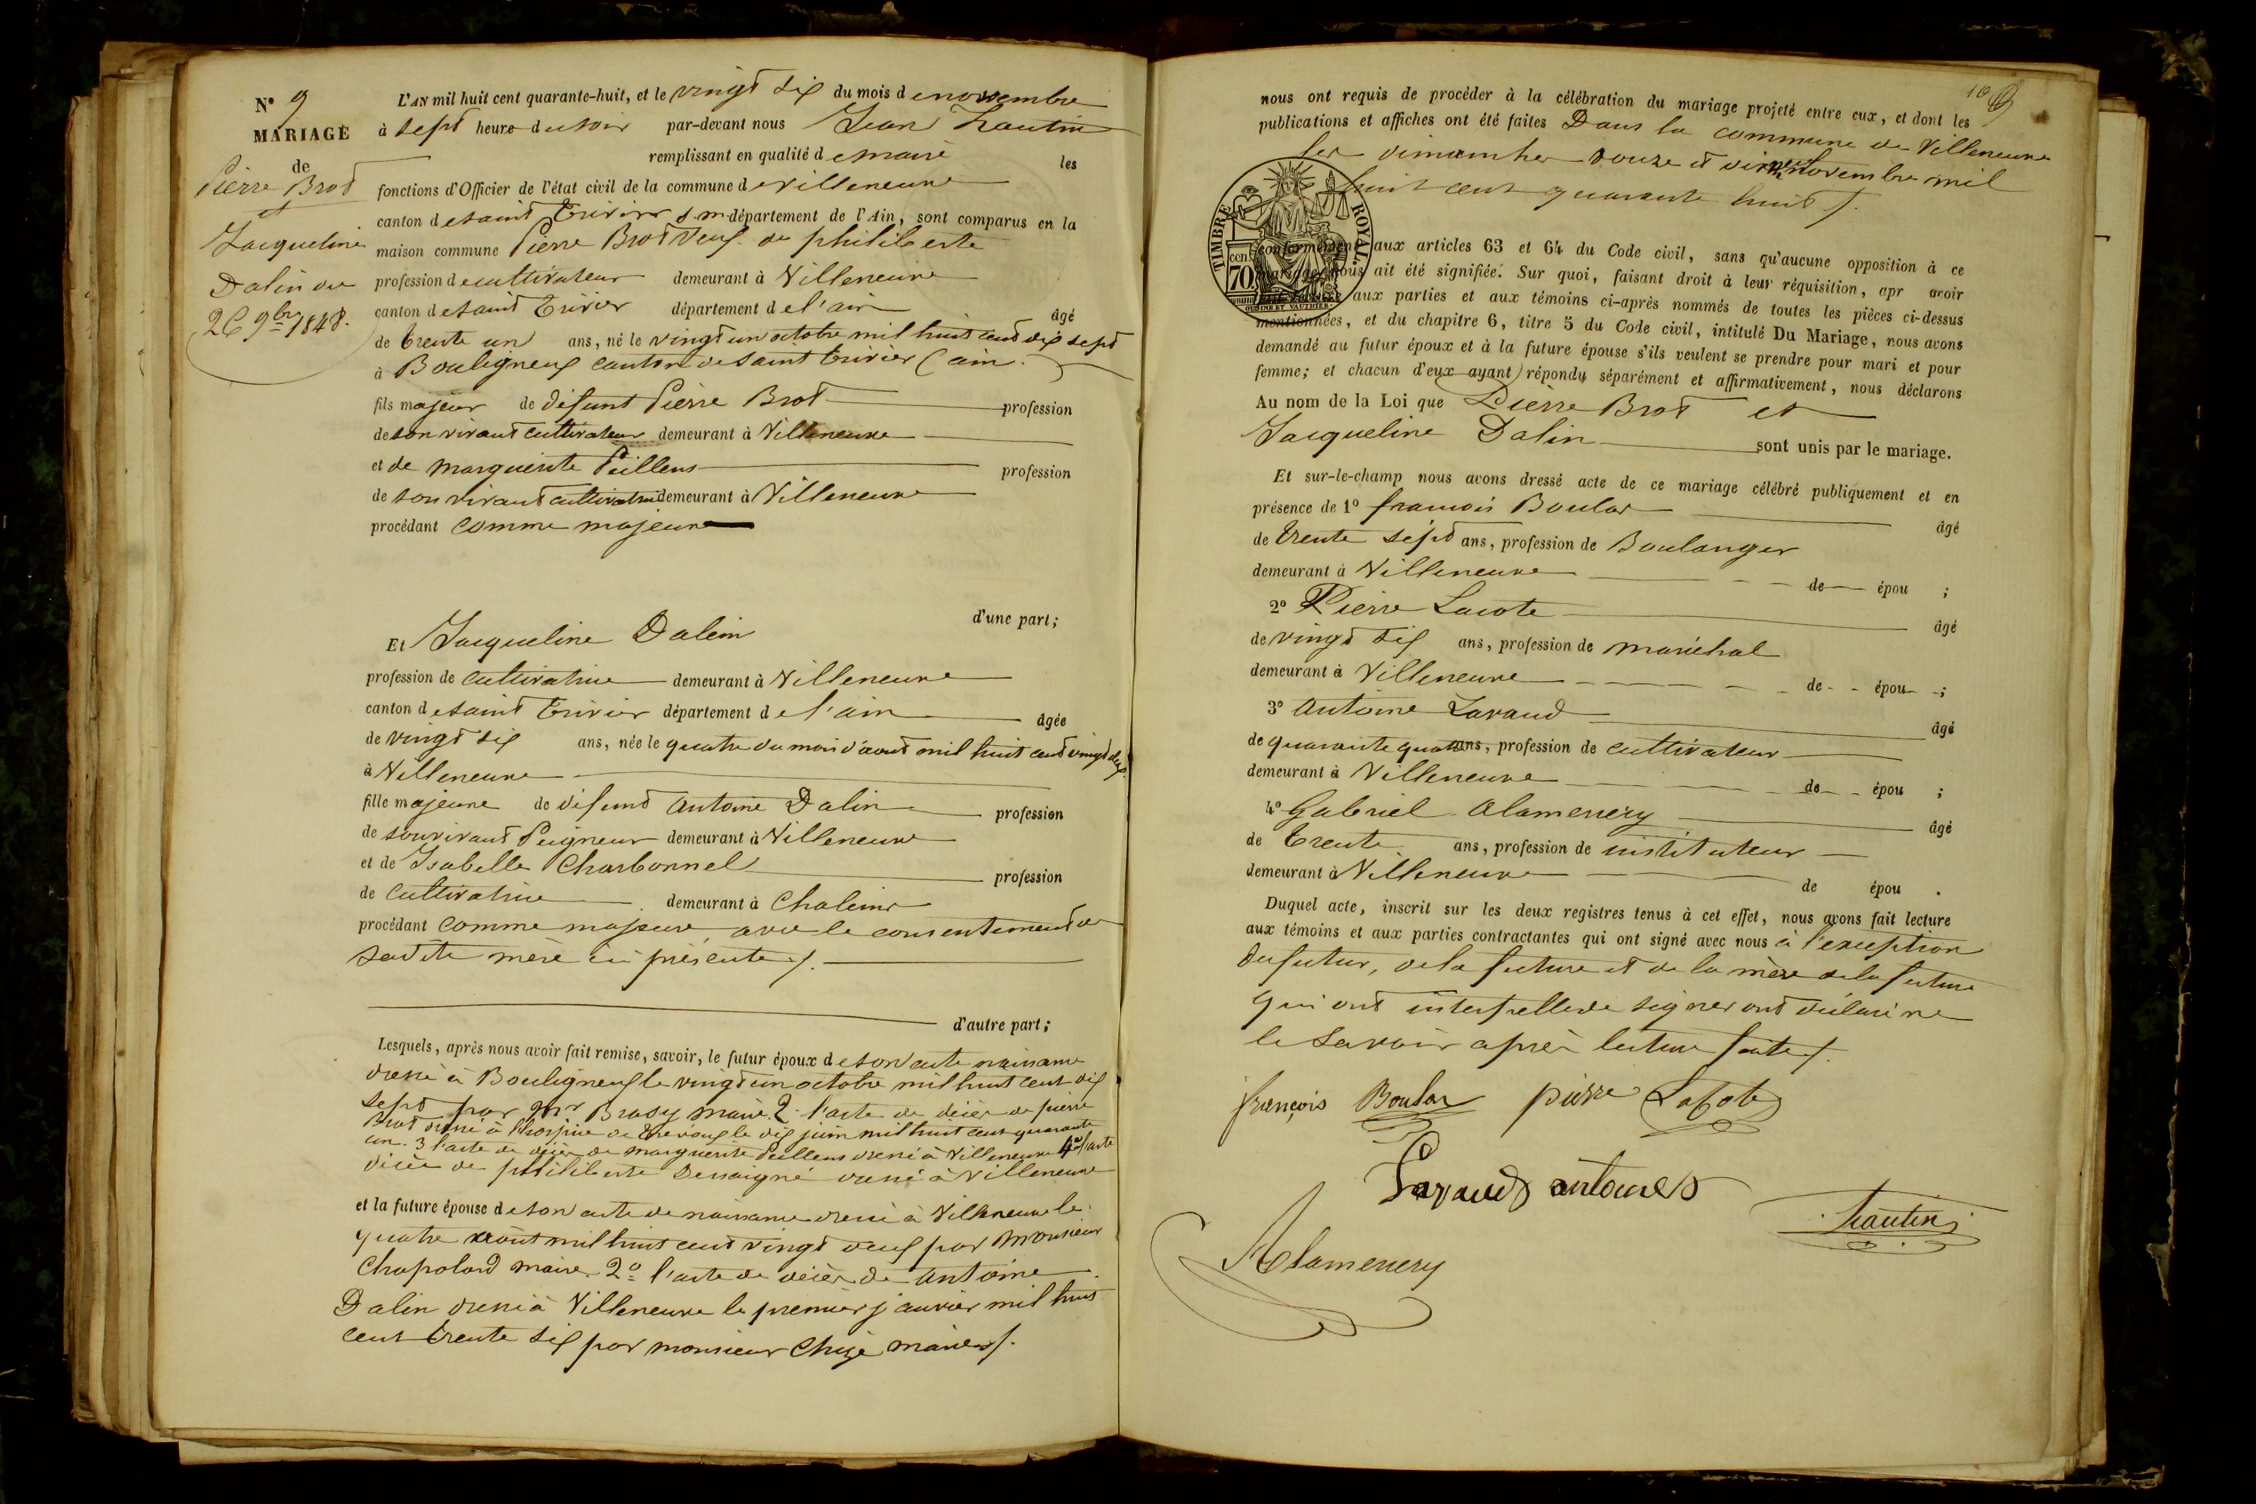 N° 9
MARIAGE
de
Pierre Brot
et
Jacqueline
Dalin du
26 9bre 1848.
L'AN mil huit cent quarante-huit, et le vingt six du mois de novembre
à sept heure du soir par-devant nous Jean Trautin
remplissant en qualité de maire les
fonctions d'Officier de l'état civil de la commune de villeneuve
canton de saint trivier s m département de l'Ain, sont comparus en la
maison commune Pierre Brot Veuf de philiberte
profession de cultivateur demeurant à Villeneuve
canton de saint trivier département de l'ain âgé
de trente un ans, né le vingt un octobre mil huit cent dix sept
à Bouligneux canton de saint trivier (ain.)
fils majeur de défunt Pierre Brot profession
de son vivant cultivateur demeurant à Villeneuve
et de marguerite Peillens profession
de son vivant cultivatrice demeurant à Villeneuve
procédant comme majeure
d'une part;
Et Jacqueline Dalin
profession de cultivatrice demeurant à Villeneuve
canton de saint trivier département de l'ain âgée
de vingt six ans, née le quatre du mois d'août mil huit cent vingt deux
à Villeneuve
fille majeure de défunt antoine Dalin profession
de son vivant Peigneur demeurant à Villeneuve
et de Isabelle Charbonnel profession
de cultivatrice demeurant à Chaleins
procédant comme majeure avec le consentement de
sadite mère ici présente /.
d'autre part;
Lesquels, après nous avoir fait remise, savoir, le futur époux de son acte naissance
dressé à Bouligneux le vingt un octobre mil huit cent dix
sept par mr Brady maire 2. l'acte de décès de pierre
Brot dressé à l'hospice de trevoux le dix juin mil huit cent quarante
un. 3 l'acte de décès de marguerite Peillens dressé à Villeneuve 4° l'acte
décès de philiberte Dessaigné dressé à villeneuve
et la future épouse de son acte de naissance dressé à Villeneuve le
quatre août mil huit cent vingt deux par Monsieur
Chapolard maire 2° l'acte de décès de antoine
Dalin dressé à Villeneuve le premier janvier mil huit
cent trente six par monsieur Chize maire /.
10
nous ont requis de procéder à la célébration du mariage projeté entre eux, et dont les
publications et affiches ont été faites Dans la commune de Villeneuve
les dimanches douze et dix neuf novembre mil
huit cent quarante huit /.
TIMBRE ROYAL.
cen.
70.
conformément aux articles 63 et 64 du Code civil, sans qu'aucune opposition à ce
mariage nous ait été signifiée. Sur quoi, faisant droit à leur réquisition, apr avoir
aux parties et aux témoins ci-après nommés de toutes les pièces ci-dessus
mentionnées, et du chapitre 6, titre 5 du Code civil, intitulé Du Mariage, nous avons
demandé au futur époux et à la future épouse s'ils veulent se prendre pour mari et pour
femme; et chacun d'eux ayant répondu séparément et affirmativement, nous déclarons
Au nom de la Loi que Pierre Brot et
Jacqueline Dalin sont unis par le mariage.
Et sur-le-champ nous avons dressé acte de ce mariage célébré publiquement et en
présence de 1° françois Boular âgé
de trente sept ans, profession de Boulanger
demeurant à Villeneuve de épou ;
2° Pierre Lacote âgé
de vingt six ans, profession de maréchal
demeurant à Villeneuve de épou ;
3° antoine Lavaud âgé
de quarante quatre ans, profession de cultivateur
demeurant à Villeneuve de épou ;
4° Gabriel alamercery âgé
de trente ans, profession de instituteur
demeurant à Villeneuve de épou .
Duquel acte, inscrit sur les deux registres tenus à cet effet, nous avons fait lecture
aux témoins et aux parties contractantes qui ont signé avec nous à l'exception
du futur, de la future et de la mère de la future
qui ont interpellé de signer ont déclaré ne
le savoir après lecture faite /.
françois Boular pierre Lacote
Lavaud antoine
Trautin
Alamercery